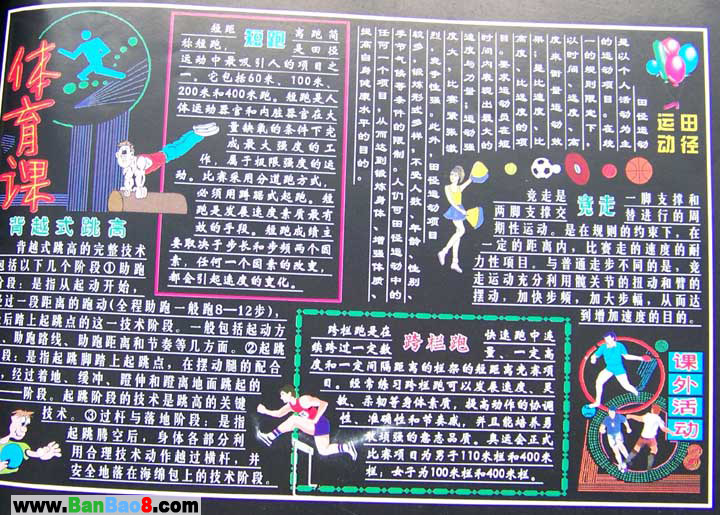 体育课
背越式跳高
背越式跳高的完整技术
包括以下几个阶段①助跑
阶段：是指从起动开始，
经过一段距离的跑动(全程助跑一般跑8—12步)，
最后踏上起跳点的这一技术阶段。一般包括起动方
、助跑路线、助跑距离和节奏等几方面。②起跳
段：是指起跳脚踏上起跳点，在摆动腿的配合
，经过着地、缓冲、蹬伸和蹬离地面跳起的
——阶段。起跳阶段的技术是跳高的关键
技术。③过杆与落地阶段：是指
起跳腾空后，身体各部分利
用合理技术动作越过横杆，并
安全地落在海绵包上的技术阶段。
短跑
短距离跑简
称短跑，是田径
运动中最吸引人的项目之
一。它包括60米、100米、
200米和400米跑。短跑是人
体运动器官和内脏器官在大
量缺氧的条件下完
成最大强度的工
作，属于极限强度的运
动。比赛采用分道跑方式，
必须用蹲踞式起跑。短
跑是发展速度素质最有
效的手段。短跑成绩主
要取决于步长和步频两个因
素，任何一个因素的改变，
都会引起速度的变化。
田径
运动
田径运动
是以个人活动为主
的运动项目。在统
一的规则限定下，
以时间、速度、高
度来衡量运动效
果；是比速度、比
高度、比远度的项
目。要求运动员在短
时间内表现出最大的
速度与力量；运动强
度大，比赛紧张激
烈，竞争性强。此外，田径运动项目
较多，锻炼形式多样，不受人数、年龄、性别、
季节气候等条件的限制。人们可田径运动中的
任何一个项目，从而达到锻炼身体、增强体质、
提高自身健康水平的目的。
竞走
竞走是一脚支撑和
两脚支撑交替进行的周
期性运动。是在规则的约束下，在
一定的距离内，比赛走的速度的耐
力性项目。与普通走步不同的是，竞
走运动充分利用髋关节的扭动和臂的
摆动，加快步频，加大步幅，从而达
到增加速度的目的。
跨栏跑
跨栏跑是在快速跑中连
续跨过一定数量、一定高
度和一定间隔距离的栏架的短距离竞赛项
目。经常练习跨栏跑可以发展速度、灵
敏、柔韧等身体素质，提高动作的协调
性、准确性和节奏感，并且能培养勇
敢顽强的意志品质。奥运会正式
比赛项目为男子110米栏和400米
栏；女子为100米栏和400米栏。
课外
活动
www.BanBao8.com